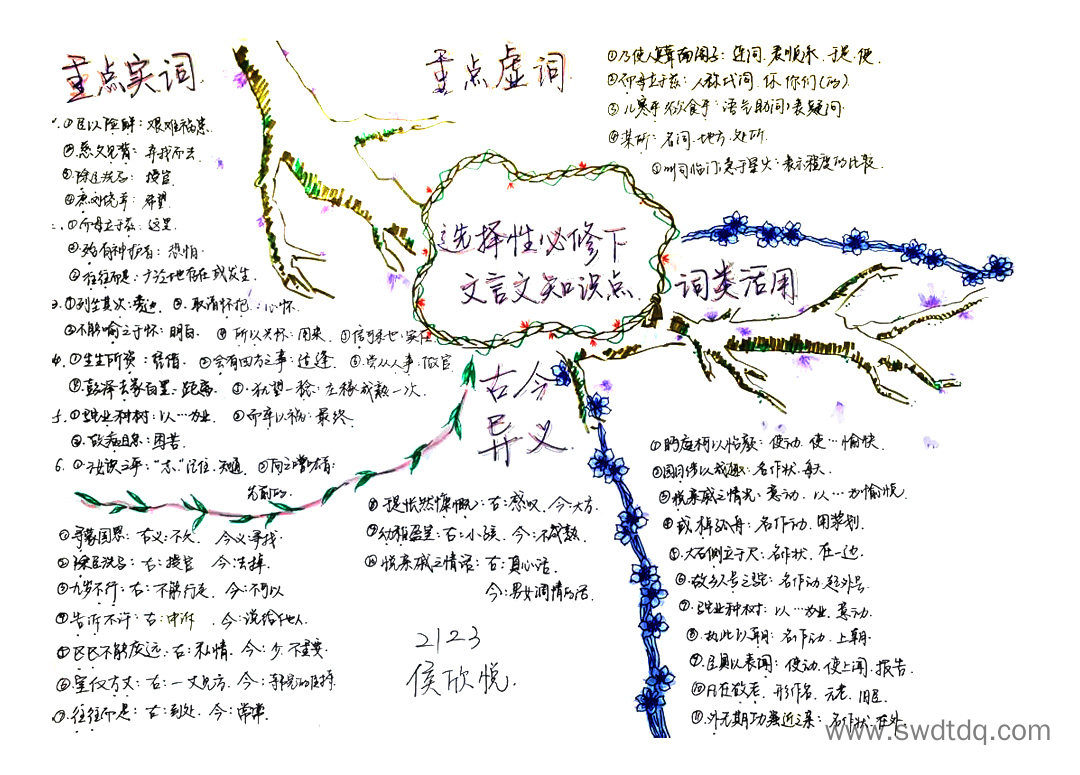 重点实词
1.①臣以险衅：艰难祸患
②慈父见背：弃我而去
③除臣洗马：授官
④庶刘侥幸：希望
二.①所母立于兹：这里
②殆有神护者：恐怕
③往往而是：广泛地存在或发生
3.①列坐其次：旁边 ②取诸怀抱：心怀
③不能喻之于怀：明白
4.①生生所资：凭借 ②会有四方之事：适逢 ③尝从人事：做官
④彭泽去家百里：距离 ⑤犹望一稔：庄稼成熟一次
5.①驼业种树：以…为业 ②而卒以祸：最终
③故病且怠：困苦
重点虚词
③儿寒乎欲食乎：语气助词，表疑问
④某所：名词，地方，处所
⑤州司临门急于星火：表示程度的比较
选择性必修下
文言文知识点
词类活用
①眄庭柯以怡颜：使动，使…愉快
②园日涉以成趣：名作状，每天
③悦亲戚之情话：意动，以…为愉悦
④或棹孤舟：名作动，用桨划
⑤大石侧立千尺：名作状，在一边
⑥故乡人号之驼：名作动，起外号
⑦驼业种树：以…为业，意动
⑧执此以朝：名作动，上朝
⑨臣具以表闻：使动，使上闻，报告
⑪外无期功强近之亲：名作状，在外
古今
异义
①寻蒙国恩：古义：不久 今义：寻找
②除臣洗马：古：授官 今：去掉
③九岁不行：古：不能行走 今：不可以
④告诉不许：古：申诉 今：说给他人
⑤区区不能废远：古：私情 今：少，不重要
⑦往往而是：古：到处 今：常常
⑧慨然慷慨：古：感叹 今：大方
⑨幼稚盈室：古：小孩 今：不成熟
⑩悦亲戚之情话：古：真心话
今：男女调情的话
2123
侯欣悦
www.swdtdq.com